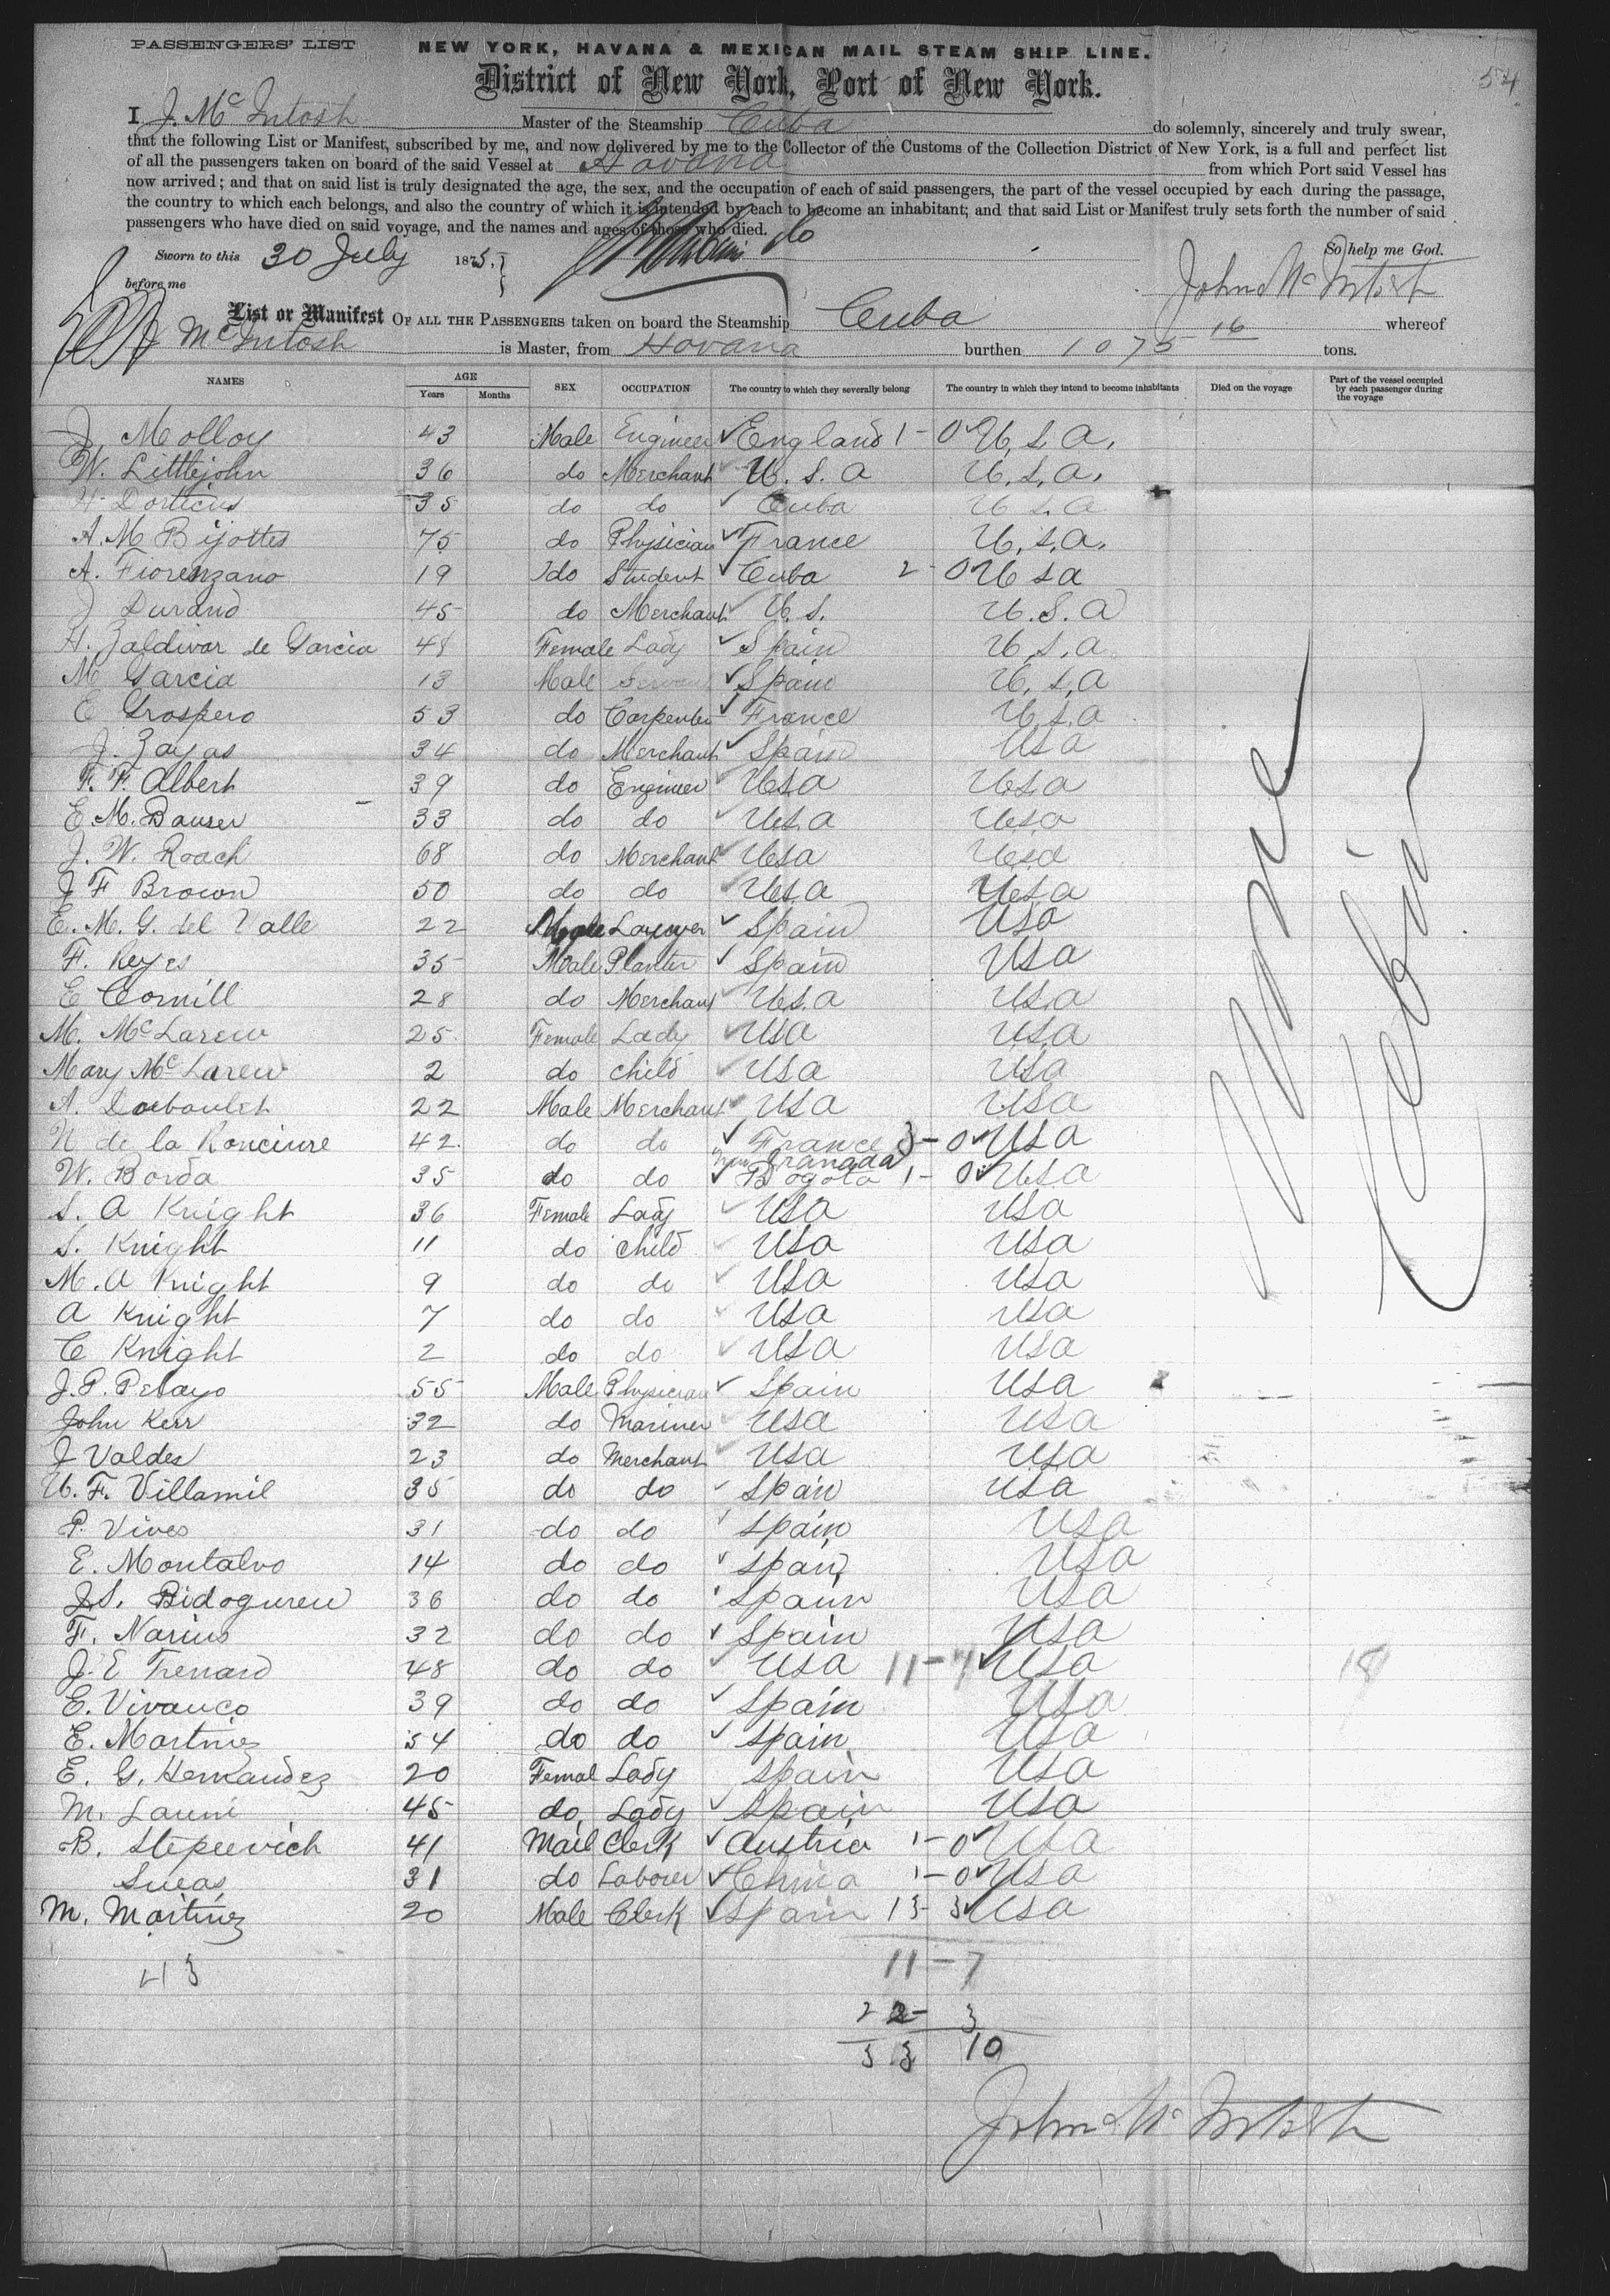 PASSENGERS' LIST
NEW YORK, HAVANA & MEXICAN MAIL STEAM SHIP LINE.
54
District of New York, Port of New York.
I J. McIntosh Master of the Steamship Cuba do solemnly, sincerely and truly swear,
that the following List or Manifest, subscribed by me, and now delivered by me to the Collector of the Customs of the Collection District of New York, is a full and perfect list
of all the passengers taken on board of the said Vessel at Havana from which Port said Vessel has
now arrived; and that on said list is truly designated the age, the sex, and the occupation of each of said passengers, the part of the vessel occupied by each during the passage,
the country to which each belongs, and also the country of which it is intended by each to become an inhabitant; and that said List or Manifest truly sets forth the number of said
passengers who have died on said voyage, and the names and ages of those who died. do
So help me God.
Sworn to this 30 July 1875,
before me
John McIntosh
List or Manifest OF ALL THE PASSENGERS taken on board the Steamship Cuba whereof
J McIntosh is Master, from Havana burthen 1075 16 tons.
NAMES AGE Years Months SEX OCCUPATION The country to which they severally belong The country in which they intend to become inhabitants Died on the voyage Part of the vessel occupied by each passenger during the voyage
J. Molloy 43 Male Engineer ✓ England 1-0 ✓ U.S.A.
W. Littlejohn 36 do Merchant ✓ U.S.A U.S.A.
H Dorticus 35 do do ✓ Cuba U S.A
A. M Bijottes 75 do Physician ✓ France U.S.A.
A. Fiorenzano 19 do Student ✓ Cuba 2-0 U S A
J Durand 45 do Merchant ✓ U.S. U.S.A
H. Zaldivar de Garcia 48 Female Lady ✓ Spain U.S.A
M Garcia 13 Male ✓ Spain U.S.A
E Grospero 53 do Carpenter ✓ France U.S.A
J. Zayas 34 do Merchant ✓ Spain USA
F. F. Albert 39 do Engineer ✓ USA USA
E. M. Bauser 33 do do ✓ USA USA
J. W. Roach 68 do Merchant ✓ USA USA
J F Brown 50 do do ✓ USA USA
E. M. G. del Valle 22 Male Lawyer ✓ Spain USA
F. Reyes 35 Male Planter ✓ Spain USA
E Cornill 28 do Merchant ✓ USA USA
M. McLaren 25 Female Lady ✓ USA USA
Mary McLaren 2 do child ✓ USA USA
A. 22 Male Merchant ✓ USA USA
N de la Ronciere 42 do do ✓ France 3-0 ✓ USA
W. Borda 35 do do ✓ New Granada Bogota 1-0 ✓ USA
S. A Knight 36 Female Lady ✓ USA USA
S. Knight 11 do child ✓ USA USA
M. A Knight 9 do do ✓ USA USA
A Knight 7 do do ✓ USA USA
C Knight 2 do do ✓ USA USA
J. P. Pelayo 55 Male Physician ✓ Spain USA
John Kerr 32 do Mariner ✓ USA USA
J Valdes 23 do Merchant ✓ USA USA
U. F. Villamil 35 do do ✓ Spain USA
P. Vives 31 do do ✓ Spain USA
E. Montalvo 14 do do ✓ Spain USA
J. S. Bidoguren 36 do do ✓ Spain USA
F. Narius 32 do do ✓ Spain USA
J. E Trenard 48 do do ✓ USA 11-7 ✓ USA 18
E. Vivanco 39 do do ✓ Spain USA
E. Martinez 54 do do ✓ Spain USA
E. G. Hernandez 20 Femal Lady Spain USA
M. Launi 45 do Lady ✓ Spain USA
B. Stepeevich 41 Mail Clerk ✓ Austria 1-0 ✓ USA
Lucas 31 do Laborer ✓ China 1-0 ✓ USA
M. Martinez 20 Male Clerk ✓ Spain 13-3 ✓ USA
None
Cabin
43
11-7
22-3
33 10
John McIntosh